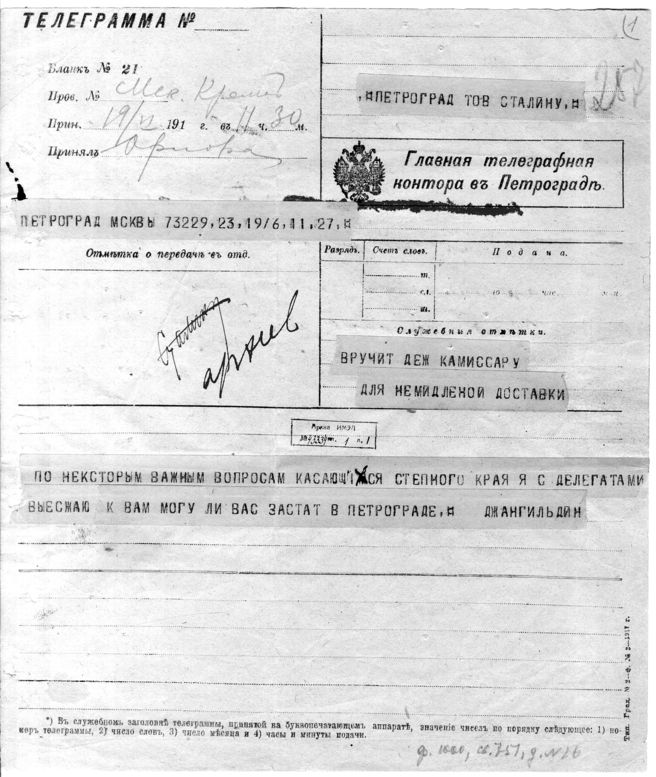 ТЕЛЕГРАММА №
1
Бланкъ № 21
Пров. №
Прин. 19/VI 191 г. въ 11 ч. 30 м.
Принялъ
257
,¤ПЕТРОГРАД ТОВ СТАЛИНУ,¤
Главная телеграфная
контора въ Петроградѣ.
ПЕТРОГРАД МСКВЫ 73229,23,19/6,11,27,¤
Отмѣтка о передачѣ въ отд.
Разрядъ.
Счетъ словъ.
Подана.
т.
сл.
т.
го
час.
м. п.
Служебныя отмѣтки.
ВРУЧИТ ДЕЖ КАМИССАРУ
ДЛЯ НЕМИДЛЕНОЙ ДОСТАВКИ
Сталин
архив
Архив ИМЭЛ
ПО НЕКСТОРЫМ ВАЖНЫМ ВОПРОСАМ КАСАЮЩІХСЯ СТЕПНОГО КРАЯ Я С ДЕЛЕГАТАМИ
ВЫЕСЖАЮ К ВАМ МОГУ ЛИ ВАС ЗАСТАТ В ПЕТРОГРАДЕ,¤ ДЖАНГИЛЬДИН
Тип. Град. № 2—ф. № 2—1917 г.
*) Въ служебномъ заголовкѣ телеграммы, принятой на буквопечатающемъ аппаратѣ, значеніе чиселъ по порядку слѣдующее: 1) но-
меръ телеграммы, 2) число словъ, 3) число мѣсяца и 4) часы и минуты подачи.